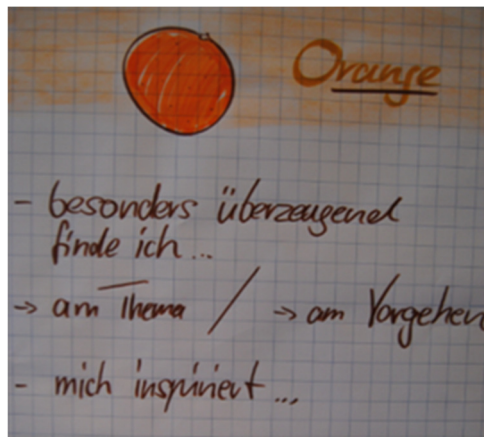 Orange
- besonders überzeugend
finde ich...
→ am Thema / → am Vorgehen
- mich inspiriert...